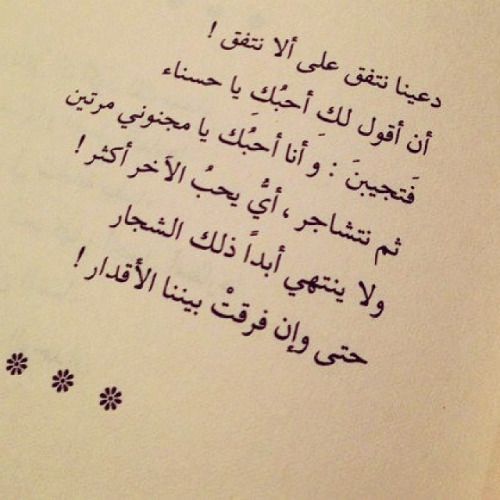 دعينا نتفق على ألا نتفق !
أن أقول لكِ أحبُكِ يا حسناء
فَتجيبنَ : و أنا أحبُك يا مجنوني مرتين
ثم نتشاجر ، أيُّ يحبُ الآخر أكثر !
ولا ينتهي أبداً ذلك الشجار
حتى وإن فرقتْ بيننا الأقدار !
* * *